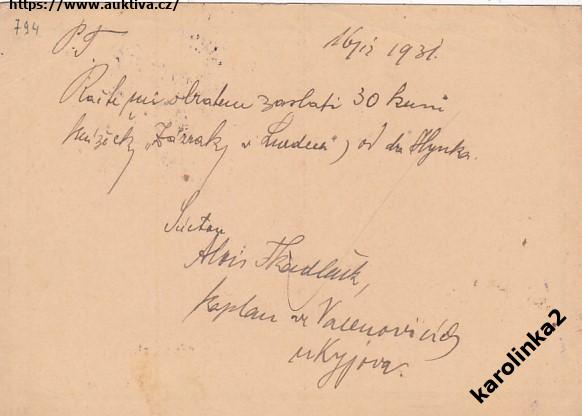 https://www.auktiva.cz/
794
P.T.
16/IX 1931.
Račte mi obratem zaslati 30 kusů
knížečky „Zázraky v Lurdech“, od dra Hynka.
S úctou
Alois
kaplan ve Vacenovicích
u Kyjova.
karolinka2